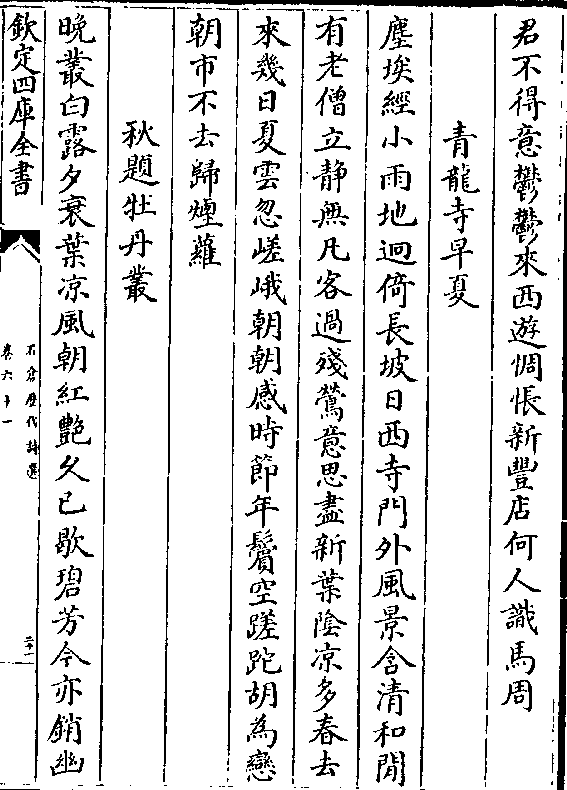 君不得意鬱鬱來西遊惆悵新豐店何人識馬周
青龍寺早夏
塵埃經小雨地迥倚長坡日西寺門外風景含清和閒
有老僧立静無凡客過殘鶯意思盡新葉陰凉多春去
來幾日夏雲忽嵯峨朝朝感時節年鬢空蹉跎胡為戀
朝市不去歸煙蘿
秋題牡丹叢
晚叢白露夕衰葉凉風朝紅艷久已歇碧芳今亦銷幽
欽定四庫全書
石倉歷代詩選
卷六十一
二十一